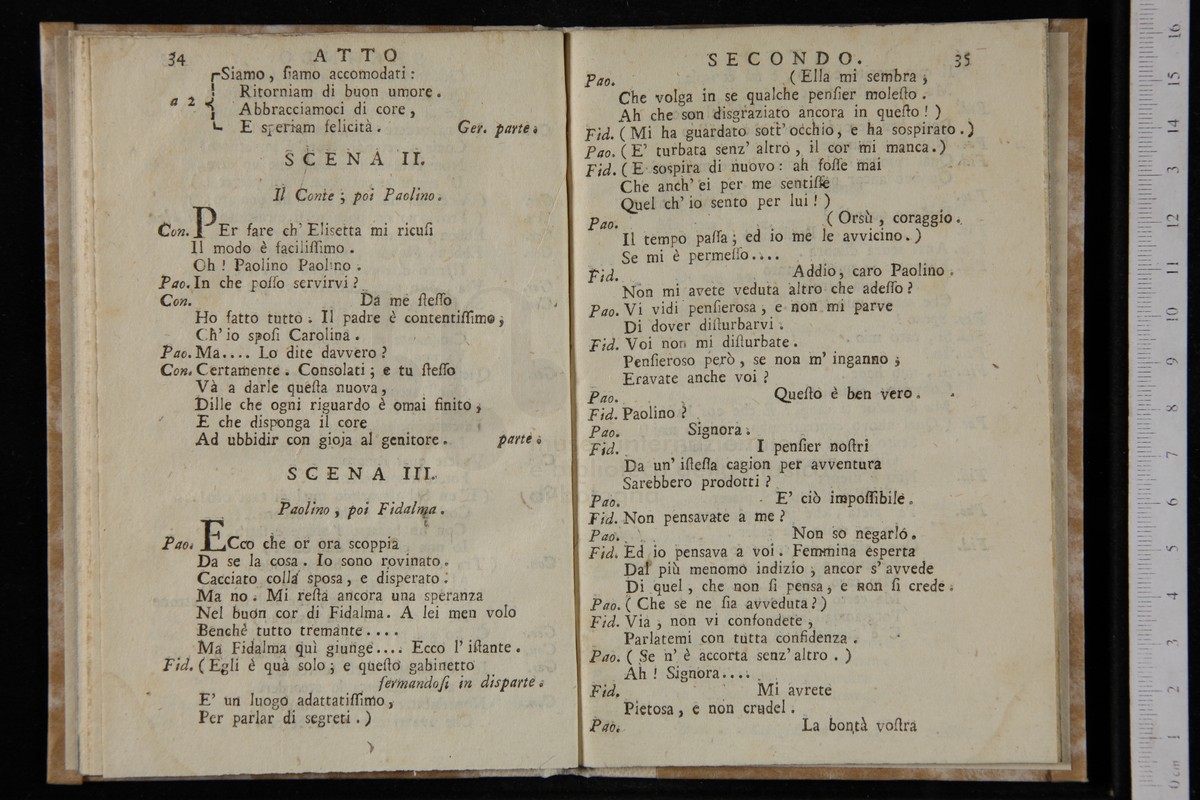 34 ATTO
Siamo, ſiamo accomodati:
Ritorniam di buon umore.
a 2
Abbracciamoci di core,
E speriam felicità. Ger. parte.
SCENA II.
Il Conte; poi Paolino.
Con. PEr fare ch' Elisetta mi ricuſi
Il modo è faciliſſimo.
Oh! Paolino Paolino.
Pao. In che poſſo servirvi?
Con. Da me ſteſſo
Ho fatto tutto. Il padre è contentiſſimo,
Ch' io spoſi Carolina.
Pao. Ma.... Lo dite davvero?
Con. Certamente. Consolati; e tu ſteſſo
Và a darle queſta nuova,
Dille che ogni riguardo è omai finito,
E che disponga il core
Ad ubbidir con gioja al genitore. parte.
SCENA III.
Paolino, poi Fidalma.
Pao. ECco che or ora scoppia
Da se la cosa. Io sono rovinato.
Cacciato colla sposa, e disperato.
Ma no. Mi reſta ancora una speranza
Nel buon cor di Fidalma. A lei men volo
Benchè tutto tremante....
Ma Fidalma quì giunge.... Ecco l' iſtante.
Fid. (Egli è quà solo; e queſto gabinetto
fermandoſi in disparte.
E' un luogo adattatiſſimo,
Per parlar di segreti.)
SECONDO. 35
Pao. (Ella mi sembra,
Che volga in se qualche penſier moleſto.
Ah che son disgraziato ancora in queſto!)
Fid. (Mi ha guardato sott' occhio, e ha sospirato.)
Pao. (E' turbata senz' altro, il cor mi manca.)
Fid. (E sospira di nuovo: ah foſſe mai
Che anch' ei per me sentiſſe
Quel ch' io sento per lui!)
Pao. (Orsù, coraggio.
Il tempo paſſa; ed io me le avvicino.)
Se mi è permeſſo....
Fid. Addio, caro Paolino.
Non mi avete veduta altro che adeſſo?
Pao. Vi vidi penſierosa, e non mi parve
Di dover diſturbarvi.
Fid. Voi non mi diſturbate.
Penſieroso però, se non m' inganno,
Eravate anche voi?
Pao. Queſto è ben vero.
Fid. Paolino?
Pao. Signora.
Fid. I penſier noſtri
Da un' iſteſſa cagion per avventura
Sarebbero prodotti?
Pao. E' ciò impoſſibile.
Fid. Non pensavate a me?
Pao. Non so negarlo.
Fid. Ed io pensava a voi. Femmina esperta
Dal più menomo indizio, ancor s' avvede
Di quel, che non ſi pensa, e non ſi crede.
Pao. (Che se ne ſia avveduta?)
Fid. Via, non vi confondete,
Parlatemi con tutta confidenza.
Pao. (Se n' è accorta senz' altro.)
Ah! Signora....
Fid. Mi avrete
Pietosa, e non crudel.
Pao. La bontà voſtra